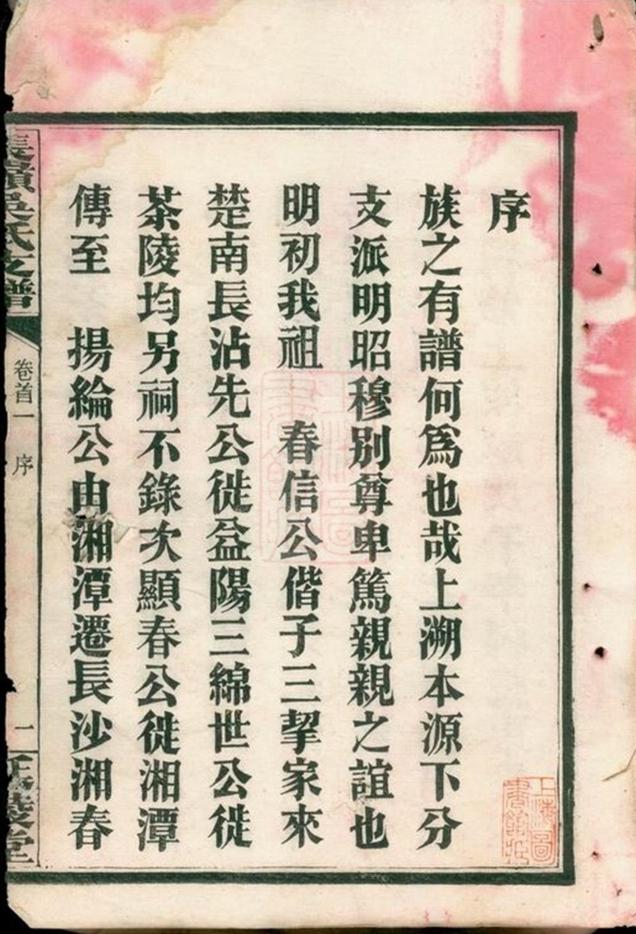 序
族之有譜何爲也哉上溯本源下分
支派明昭穆別尊卑篤親親之誼也
明初我祖　春信公偕子三挈家來
楚南長沾先公徙益陽三綿世公徙
茶陵均另祠不錄次顯春公徙湘潭
傳至　揚綸公由湘潭遷長沙湘春
吳氏支譜
卷首一　序
一
上海圖書館藏